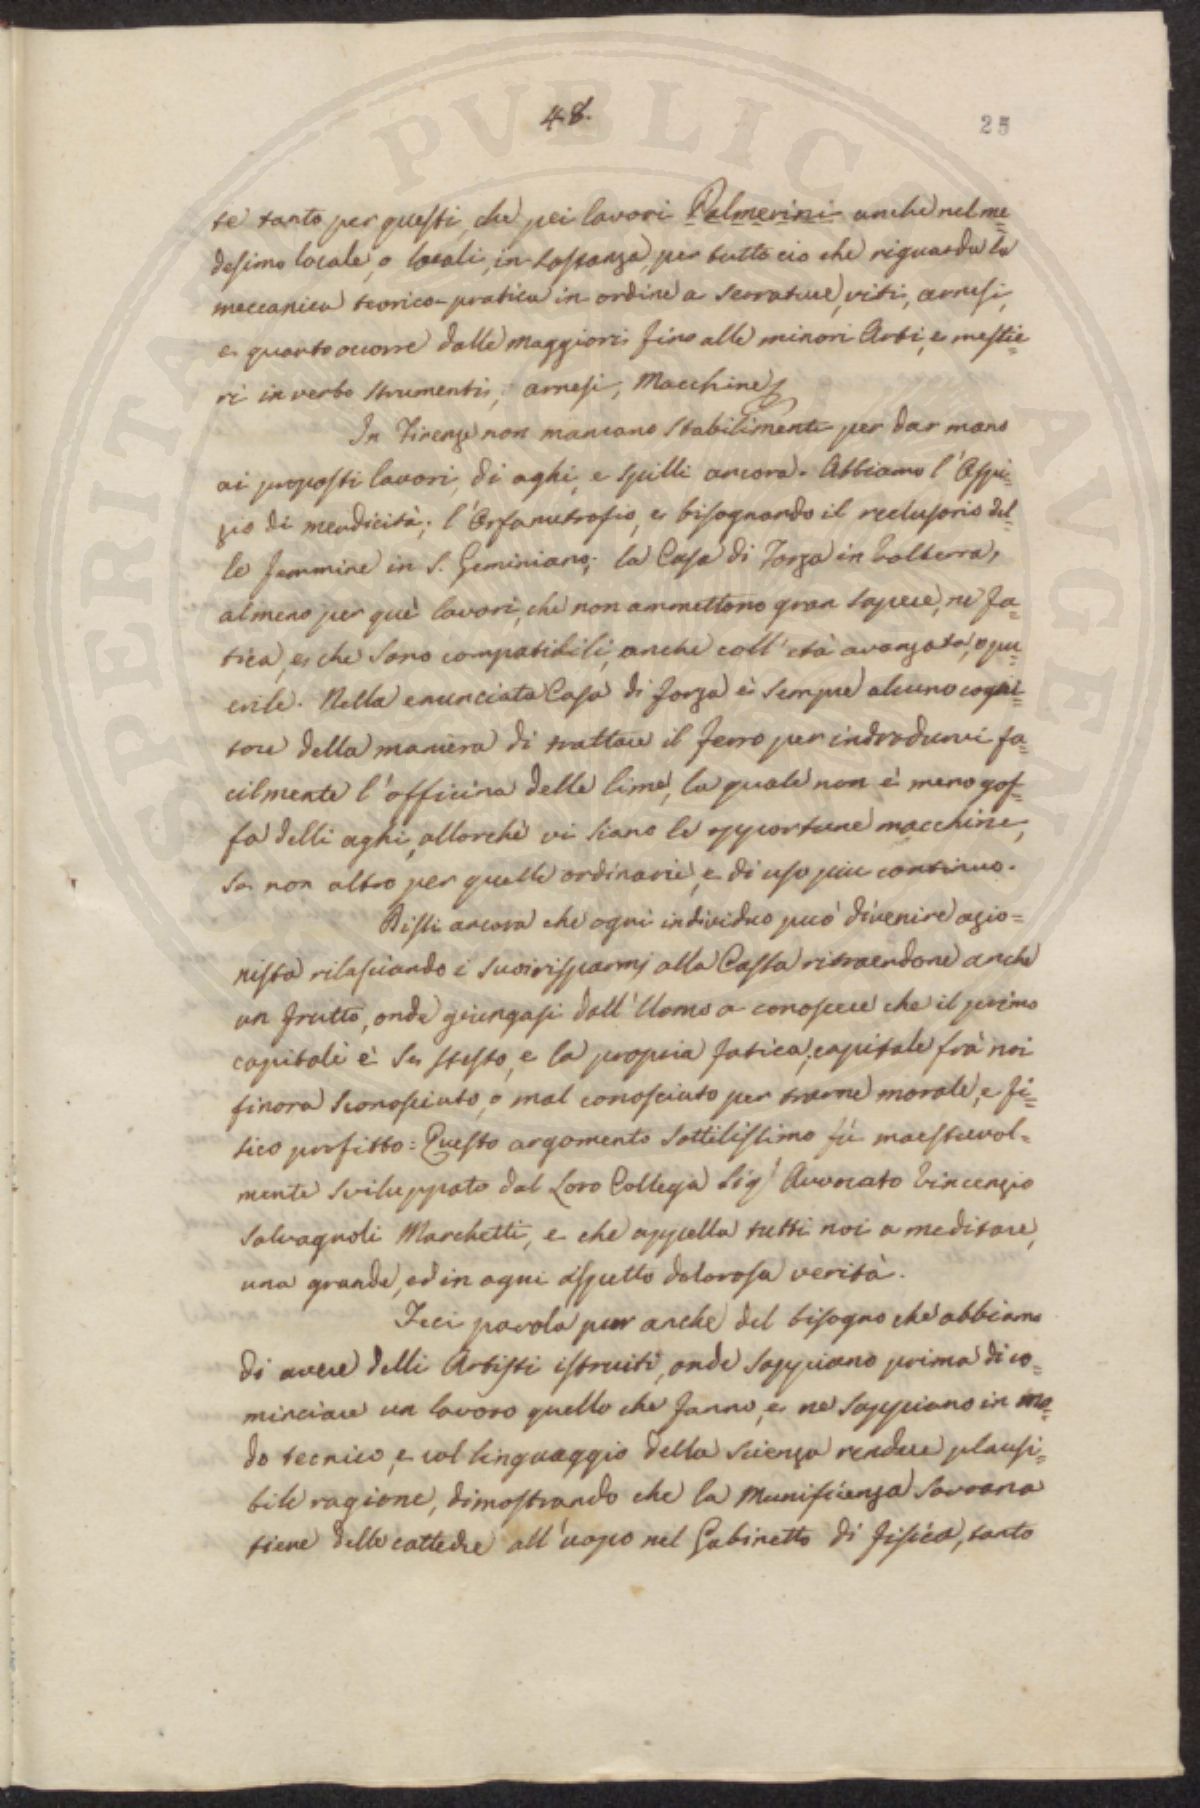 48.
25
te tanto per questi, che pei lavori Palmerini anche nel me=
desimo locale, o locali, in sostanza, per tutto ciò che riguarda la
meccanica teorico-pratica in ordine a serrature, viti, arnesi,
e quanto occorre dalle maggiori fino alle minori Arti, e mestie=
ri in verbo strumenti, arnesi, Macchine.
In Firenze non mancano Stabilimenti per dar mano
ai proposti lavori, di aghi, e spilli ancora. Abbiamo l'Ospi=
zio di mendicità; l'Orfanotrofio, e bisognando il reclusorio del=
le femmine in S. Geminiano; la Casa di Forza in Volterra,
almeno per què lavori, che non ammettono gran sapere, ne fa=
tica, e che sono compatibili, anche coll'età avanzata, o pu=
erile. Nella enunciata Casa di forza è sempre alcuno cogni=
tore della maniera di trattare il ferro per indrodurvi fa=
cilmente l'officina delle lime, la quale non è meno gof=
fa delli aghi, allorchè vi siano le opportune macchine,
se non altro per quelle ordinarie, e di uso piu continuo.
Dissi ancora che ogni individuo può divenire azio=
nista rilasciando i suoi risparmj alla Cassa ritraendone anche
un frutto, onde giungasi dall'Uomo a conoscere che il primo
capitale è se stesso, e la propria fatica; capitale frà noi
finora sconosciuto, o mal conosciuto per trarne morale, e fi=
sico profitto: Questo argomento sottilissimo fù maestrevol=
mente sviluppato dal Loro Collega Sig.r Avvocato Vincenzio
Salvagnoli Marchetti, e che appella tutti noi a meditare,
una grande, ed in ogni aspetto dolorosa verità.
Feci parola pur anche del bisogno che abbiamo
di avere delli Artisti istruiti, onde sappiano prima di co=
minciare un lavoro quello che fanno, e ne sappiano in mo=
do tecnico, e col linguaggio della scienza rendere plausi=
bile ragione, dimostrando che la Munificienza Sovrana
tiene delle cattedre all'uopo nel Gabinetto di fisica, tanto